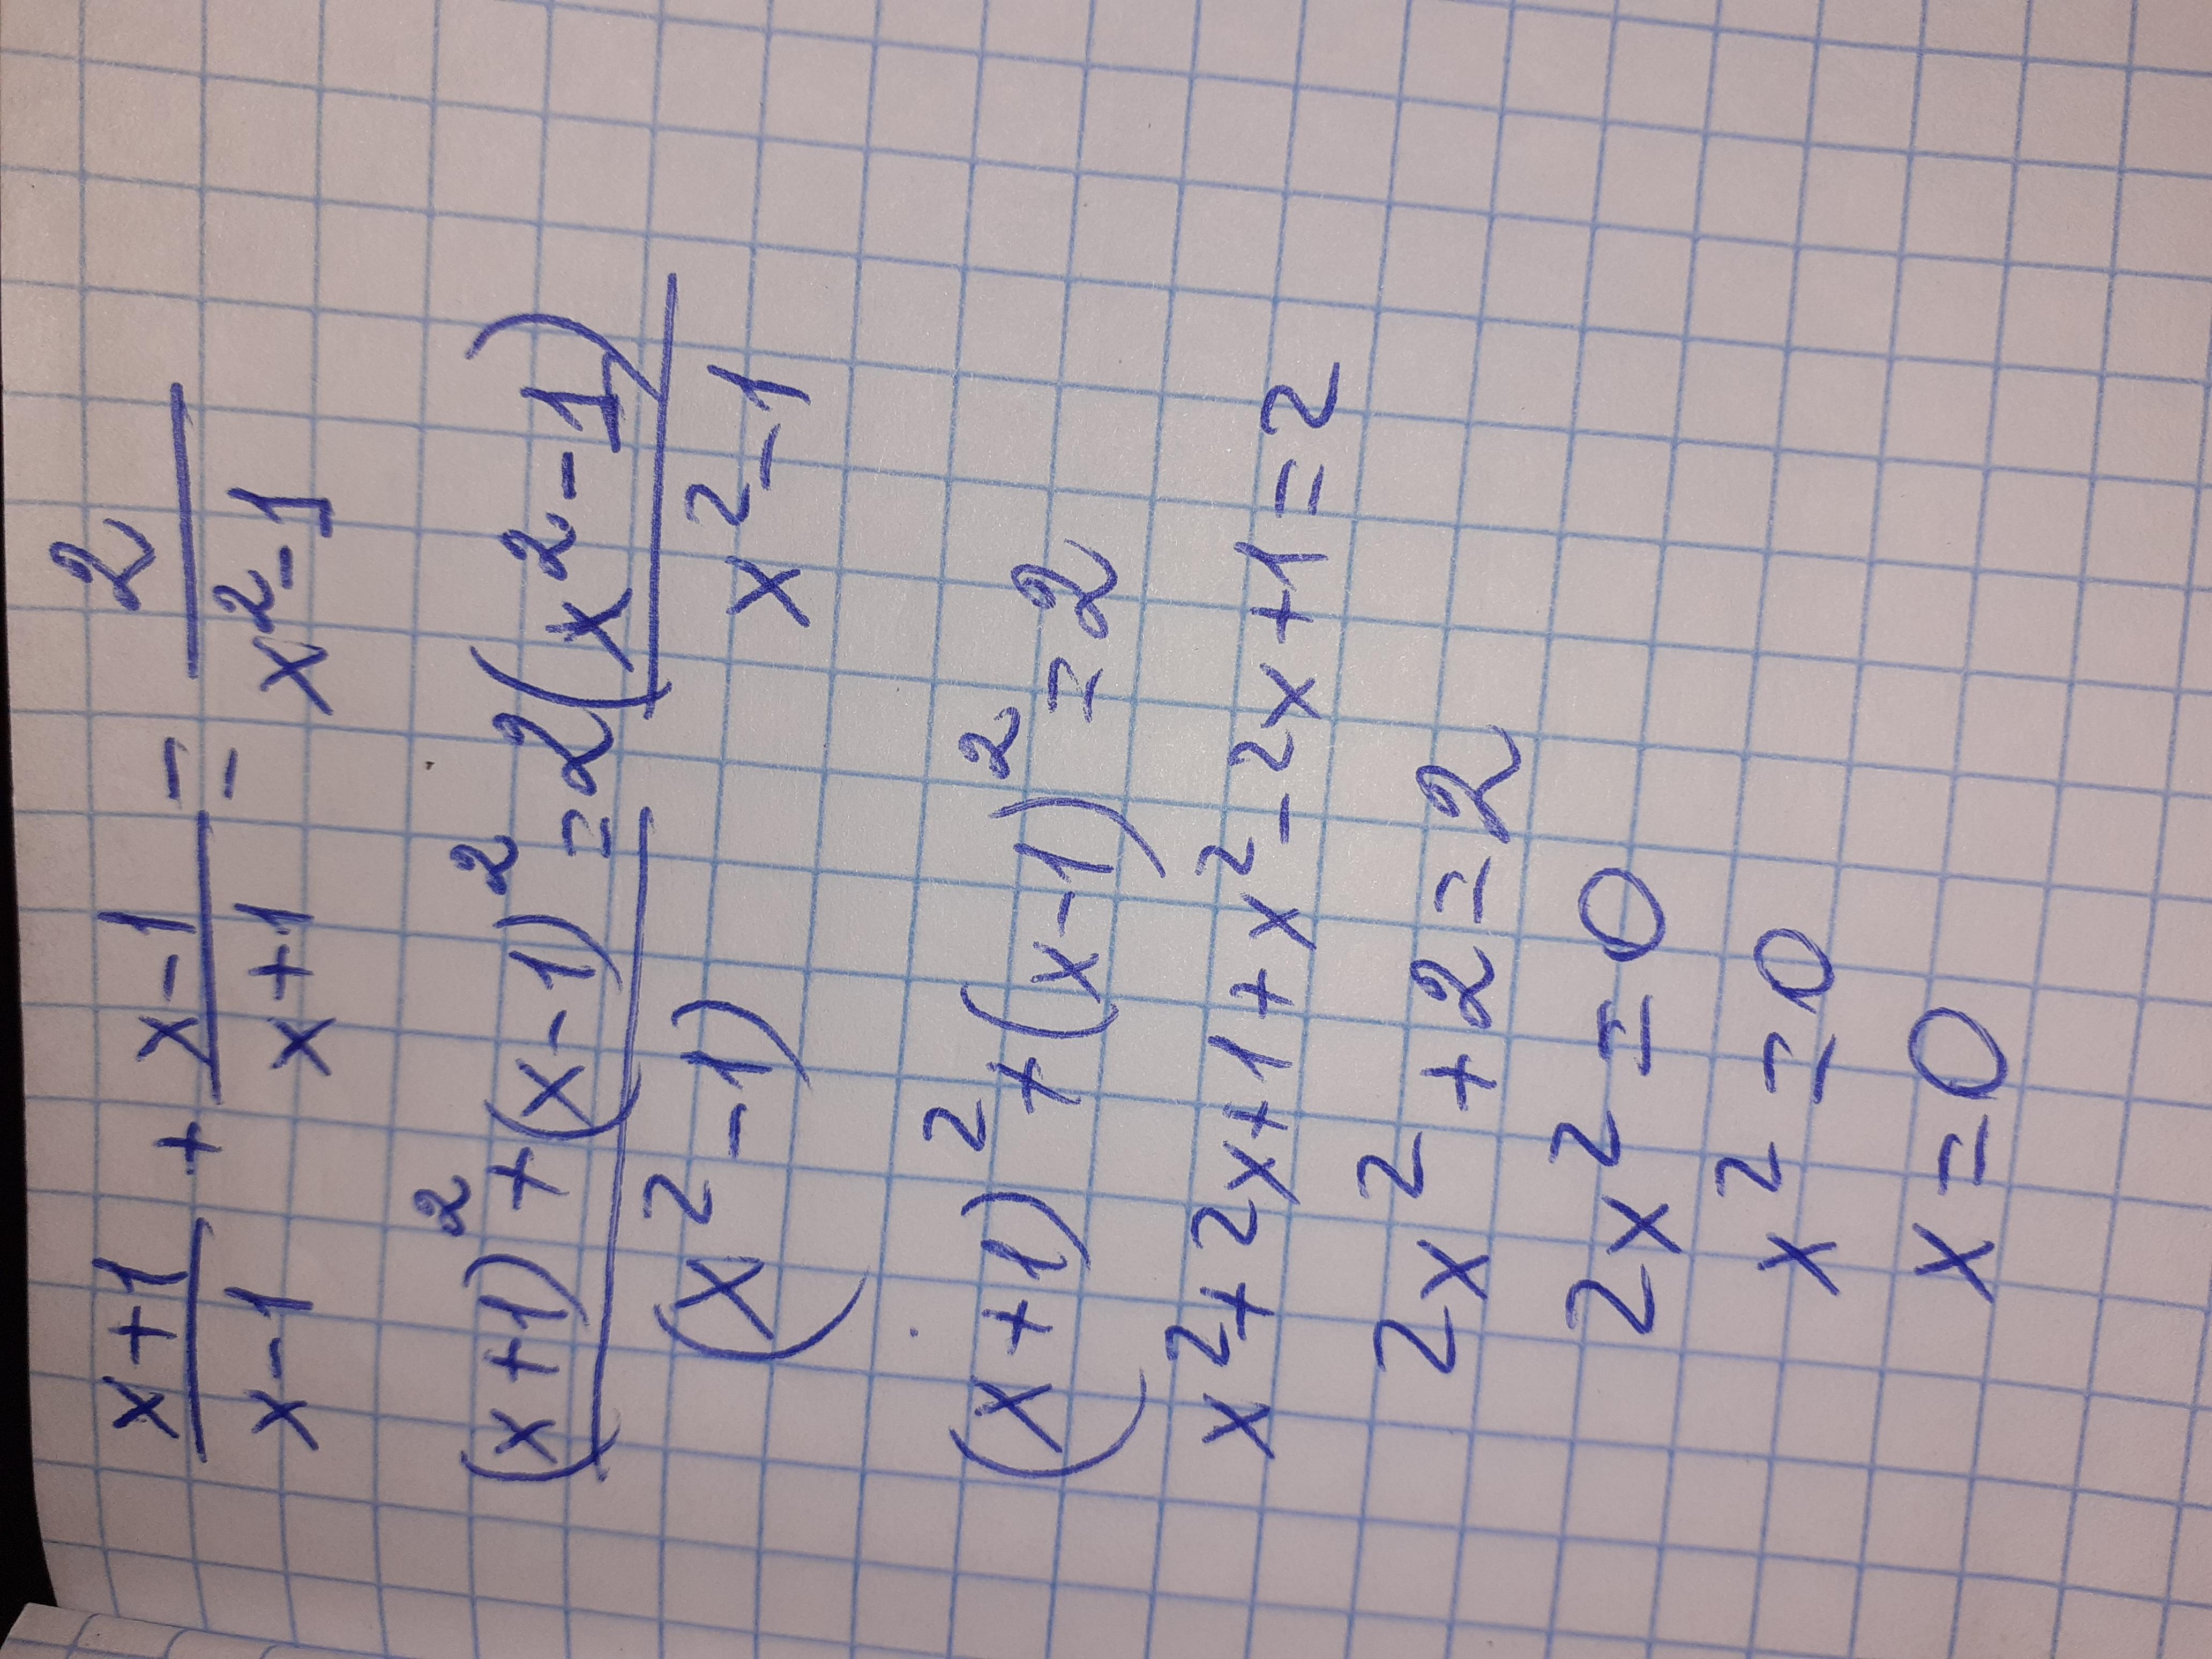 (x+1)/(x-1) + (x-1)/(x+1) = 2/(x²-1)
((x+1)²+(x-1)²)/(x²-1) = 2(x²-1)/(x²-1)
(x+1)²+(x-1)²=2
x²+2x+1+x²-2x+1=2
2x²+2=2
2x²=0
x²=0
x=0